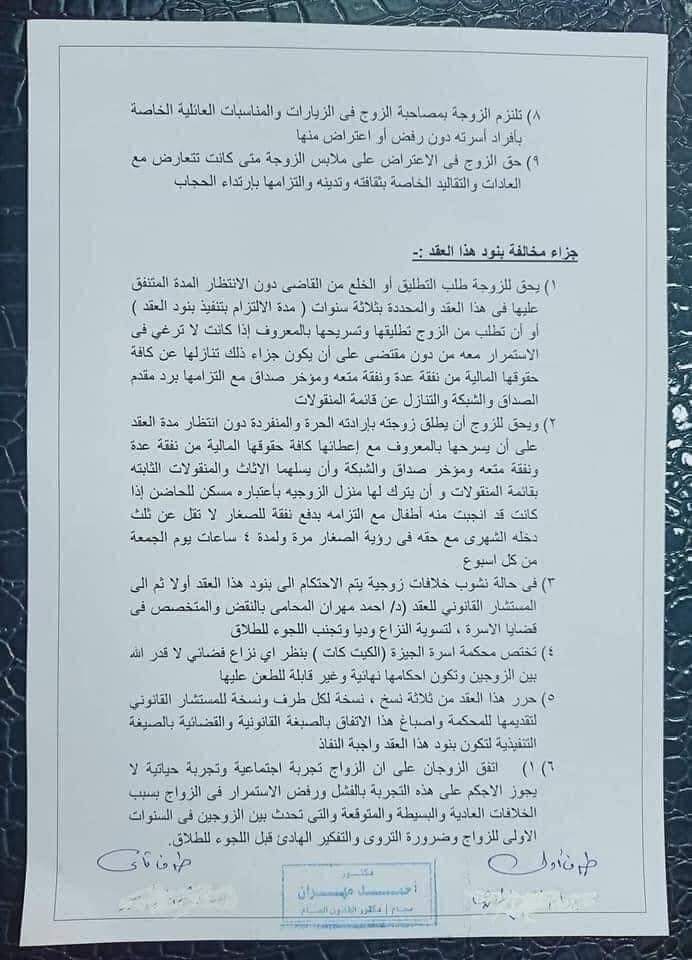 ٨) تلتزم الزوجة بمصاحبة الزوج فى الزيارات والمناسبات العائلية الخاصة
بأفراد أسرته دون رفض أو اعتراض منها
٩) حق الزوج فى الاعتراض على ملابس الزوجة متى كانت تتعارض مع
العادات والتقاليد الخاصة بثقافته وتدينه والتزامها بإرتداء الحجاب
جزاء مخالفة بنود هذا العقد :-
١) يحق للزوجة طلب التطليق أو الخلع من القاضى دون الانتظار المدة المتفق
عليها فى هذا العقد والمحددة بثلاثة سنوات ( مدة الالتزام بتنفيذ بنود العقد )
أو ان تطلب من الزوج تطليقها وتسريحها بالمعروف إذا كانت لا ترغي فى
الاستمرار معه من دون مقتضى على أن يكون جزاء ذلك تنازلها عن كافة
حقوقها المالية من نفقة عدة ونفقة متعه ومؤخر صداق مع التزامها برد مقدم
الصداق والشبكة والتنازل عن قائمة المنقولات
٢) ويحق للزوج أن يطلق زوجته بإرادته الحرة والمنفردة دون انتظار مدة العقد
على أن يسرحها بالمعروف مع إعطائها كافة حقوقها المالية من نفقة عدة
ونفقة متعه ومؤخر صداق والشبكة وأن يسلهما الاثاث والمنقولات الثابته
بقائمة المنقولات و أن يترك لها منزل الزوجيه بأعتباره مسكن للحاضن إذا
كانت قد انجبت منه أطفال مع التزامه بدفع نفقة للصغار لا تقل عن ثلث
دخله الشهرى مع حقه فى رؤية الصغار مرة ولمدة ٤ ساعات يوم الجمعة
من كل اسبوع
٣) فى حالة نشوب خلافات زوجية يتم الاحتكام الى بنود هذا العقد أولا ثم الى
المستشار القانوني للعقد (د/ احمد مهران المحامى بالنقض والمتخصص فى
قضايا الاسرة ، لتسوية النزاع وديا وتجنب اللجوء للطلاق
٤) تختص محكمة اسرة الجيزة (الكيت كات ) بنظر اي نزاع قضائي لا قدر الله
بين الزوجين وتكون احكامها نهائية وغير قابلة للطعن عليها
٥) حرر هذا العقد من ثلاثة نسخ ، نسخة لكل طرف ونسخة للمستشار القانوني
لتقديمها للمحكمة واصباغ هذا الاتفاق بالصبغة القانونية والقضائية بالصيغة
التنفيذية لتكون بنود هذا العقد واجبة النفاذ
٦) ١) اتفق الزوجان على ان الزواج تجربة اجتماعية وتجربة حياتية لا
يجوز الاجكم على هذه التجربة بالفشل ورفض الاستمرار فى الزواج بسبب
الخلافات العادية والبسيطة والمتوقعة والتى تحدث بين الزوجين فى السنوات
الاولى للزواج وضرورة التروى والتفكير الهادئ قبل اللجوء للطلاق.
طرف أول
طرف ثانى
دكتور
أحمد مهران
محام / دكتور القانون العام